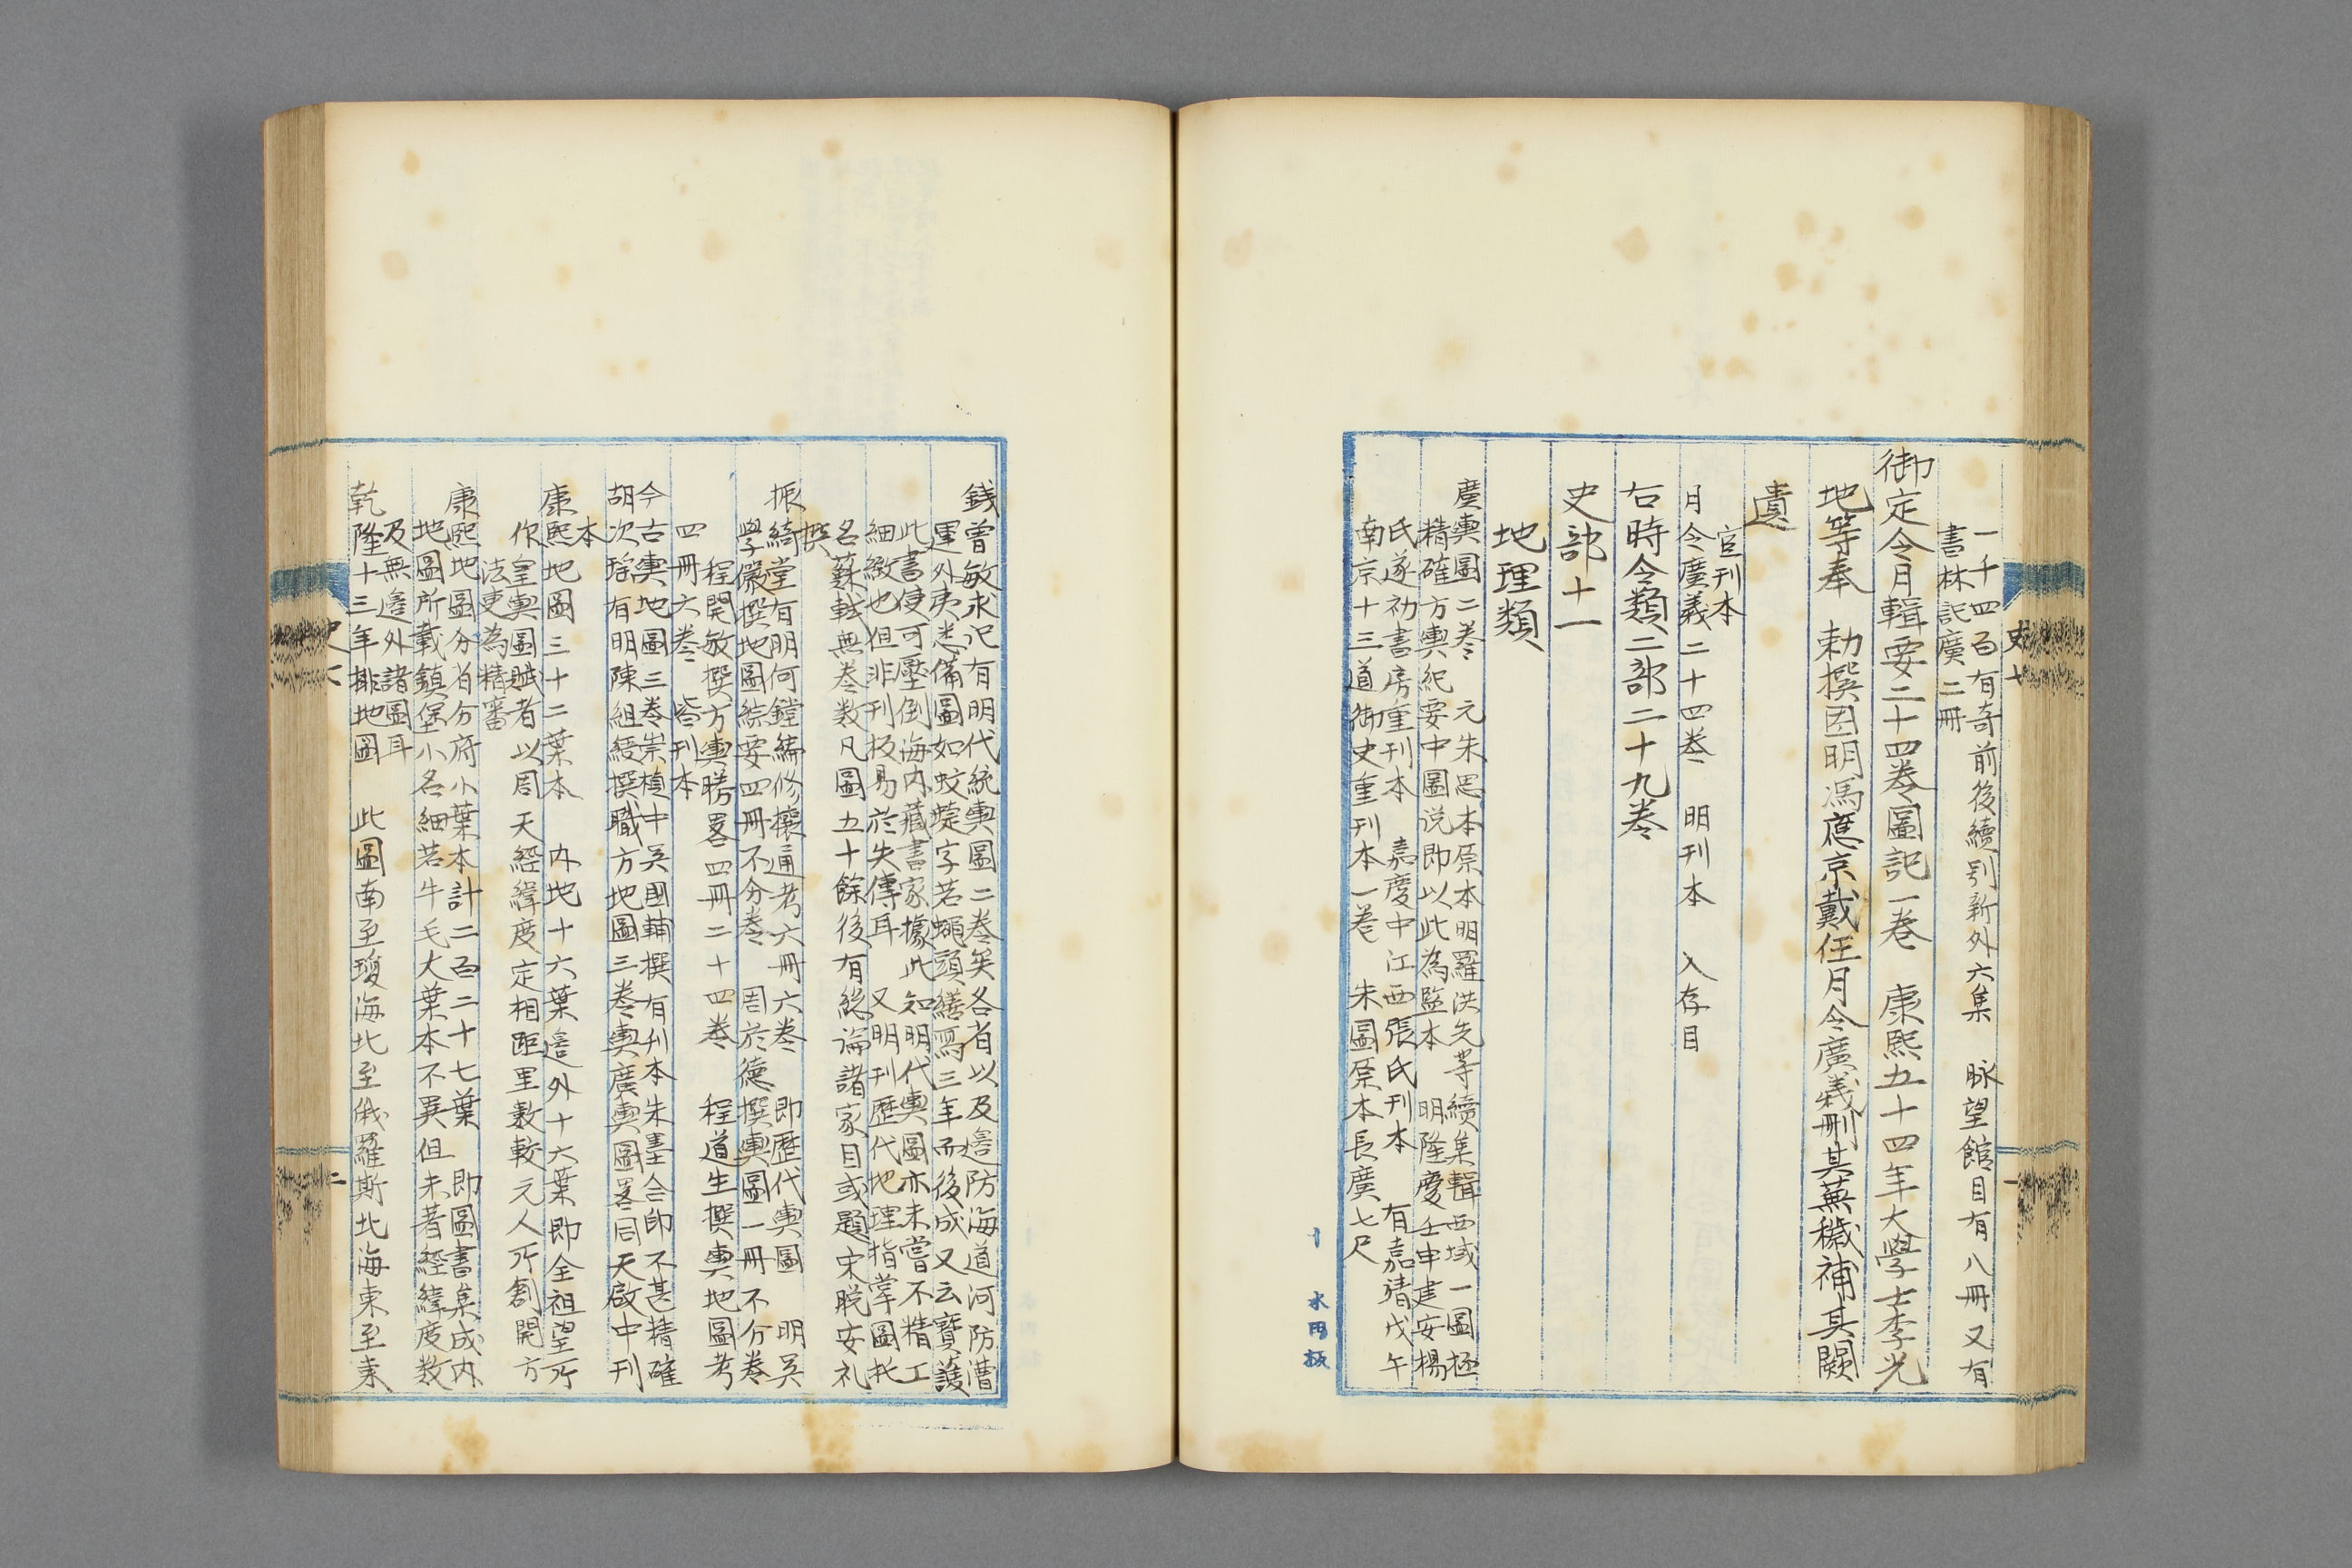 一千四百有奇前後續別新外六集　脉望館目有八冊又有
書林記廣二冊
御定令月輯要二十四卷圖記一卷　康熙五十四年大學士李光
地等奉　勅撰因明馮應京戴任月令廣義刪其蕪穢補其闕
遺
官刊本
月令廣義二十四卷　明刊本　入存目
右時令類二部二十九卷
史部十一
地理類
廣輿圖二卷　元朱思本原本明羅洪先等續集輯西域一圖極
精確方輿紀要中圖说即以此為監本　明隆慶壬申建安楊
氏遂初書房重刊本　嘉慶中江西張氏刊本　有嘉靖戊午
南京十三道御史重刊本一卷　朱圖原本長廣七尺
錢曾敏求记有明代統輿圖二卷矣各省以及邊防海道河防漕
運外夷悉備圖如蚊蜨字若蠅頭繕寫三年而後成又云寶護
此書便可壓倒海内藏書家據此知明代輿圖亦未嘗不精工
細緻也但非刊板易於失傳耳　又明刊歷代地理指掌圖托
名蘇軾無卷数凡圖五十餘後有総論諸家目或題宋晚安礼
撰
振綺堂有明何鏜編修攘通考六冊六卷　即歷代輿圖　明吴
學儼撰地圖綜要四冊不分卷　周於德撰輿圖一冊不分卷
程開敏撰方輿勝畧四冊二十四卷　程道生撰輿地圖考
四冊六卷　咨刊本
今古輿地圖三卷崇楨中吴國輔撰有刋本朱墨合印不甚精確
胡次瑤有明陳組綬撰職方地圖三卷輿廣輿圖畧同天啟中刊
本
康熙地圖三十二葉本　内地十六葉邊外十六葉即全祖望所
作皇輿圖賦者以周天經緯度定相距里數較元人所創開方
法更為精審
康熙地圖分省分府小葉本計二百二十七葉　即圖書集成内
地圖所載鎮堡小名細若牛毛大葉本不異但未著經緯度数
及無邊外諸圖耳
乾隆十三年排地圖　此圖南至瓊海北至俄羅斯北海東至東
史十
一
二
水円板